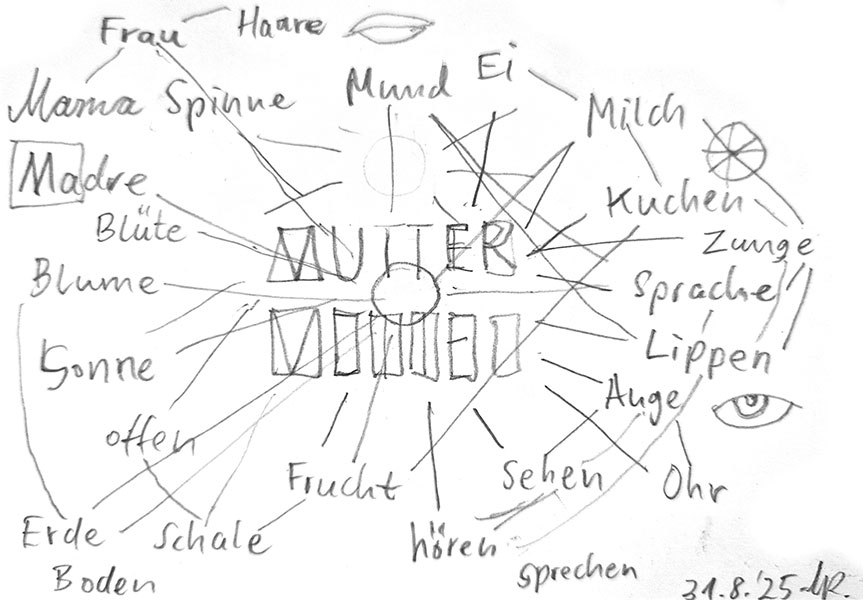 Frau
Haare
Mama
Spinne
Mund
Ei
Milch
Madre
Kuchen
Blüte
MUTTER
Zunge
Blume
Sprache
Sonne
Lippen
Auge
offen
Frucht
Sehen
Ohr
Erde
Schale
hören
Boden
sprechen
31.8.'25